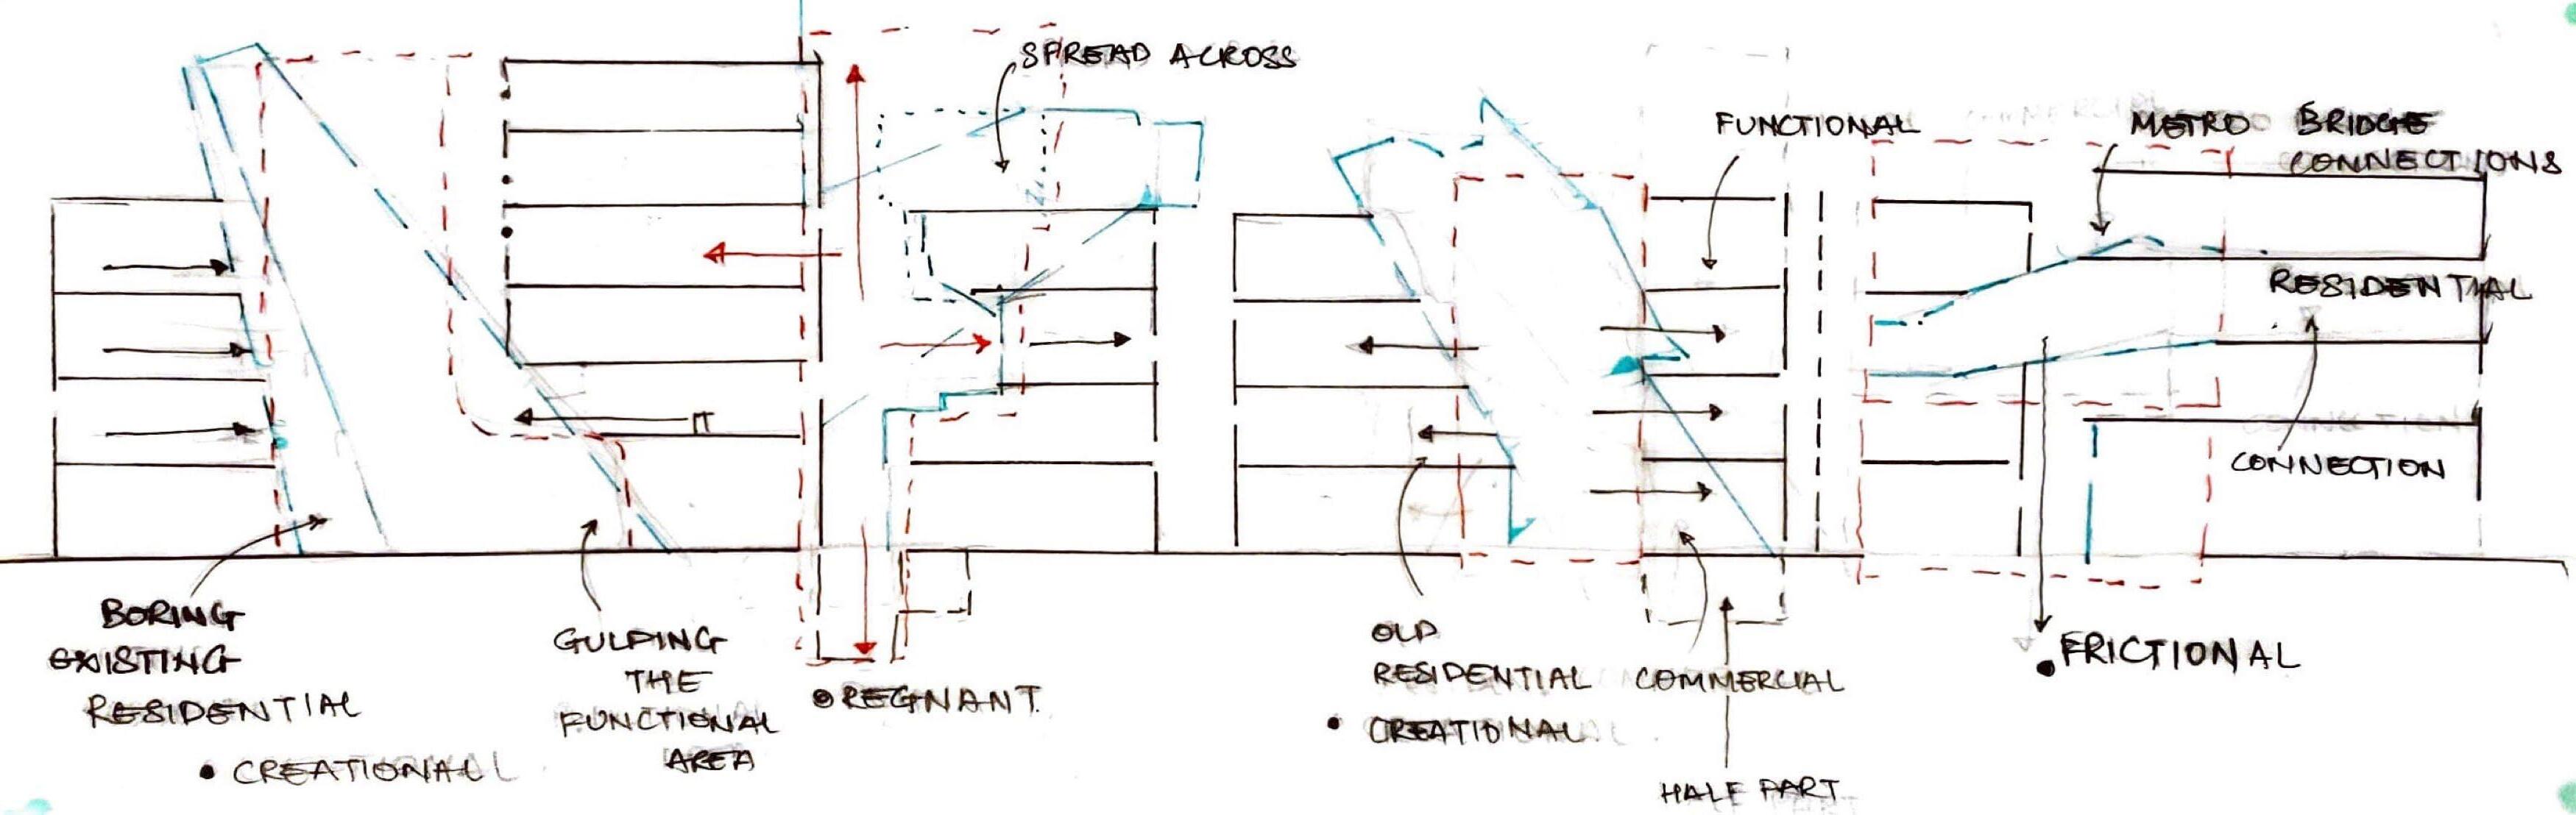 SPREAD ACROSS
FUNCTIONAL
METRO BRIDGE
CONNECTIONS
RESIDENTIAL
CONNECTION
IT
BORING
EXISTING
RESIDENTIAL
• CREATIONAL
GULPING
THE
FUNCTIONAL
AREA
• REGNANT
OLD
RESIDENTIAL
• CREATIONAL
COMMERCIAL
HALF PART
• FRICTIONAL